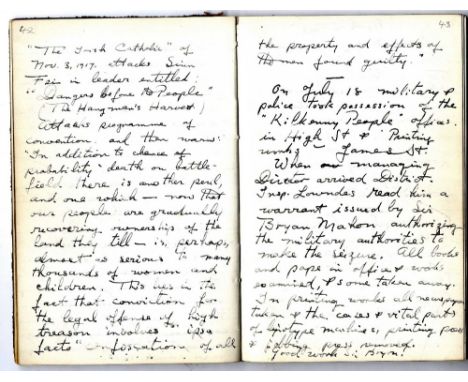 42
"The Irish Catholic" of
Nov. 3, 1917. attacks Sinn
Fein in leader entitled:
"Dangers before the People"
(The Hangman's Harvest)
Attacks programme of
convention and then warns:
"In addition to chance of
probability death on battle-
field there is another peril,
and one which — now that
our people are gradually
recovering ownership of the
land they till — is, perhaps,
almost as serious to many
thousands of women and
children. This lies in the
fact that conviction for
the legal offense of high
treason involves "ipso
facto" confiscation of all
43
the property and effects of
the man found guilty."
On July 18 military &
police took possession of the
"Kilkenny People" offices
in High St & Printing
works James St
When managing
Director arrived District
Insp. Lowndes read him a
warrant issued by Sir
Bryan Mahon authorizing
the military authorities to
make the seizure. All books
and papers in office & works
examined, & some taken away.
In printing works all newspaper
taken & the cases & vital parts
of linotype machines, printing
& press removed.
Good work Sir Bryan!